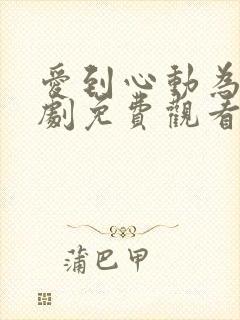 愛到心動為
劇免費觀看
蒲巴甲